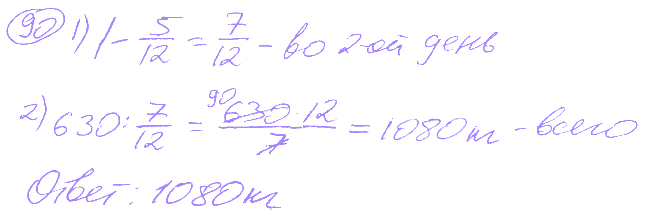 90 1) 1 - 5/12 = 7/12 - во 2-ой день
2) 630 : 7/12 = 90 630 · 12 / 7 = 1080 кг - всего
Ответ: 1080 кг